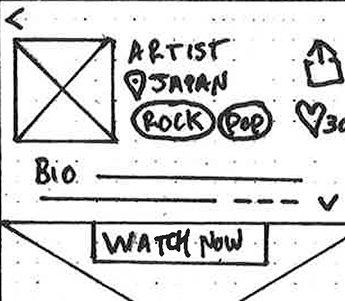 <
ARTIST
JAPAN
ROCK POP
Bio
WATCH NOW